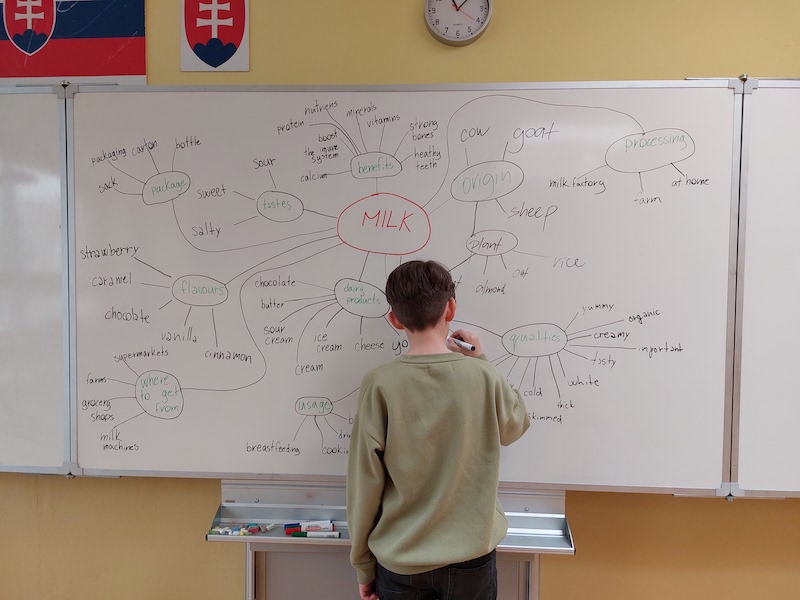 MILK
benefits
nutriens
minerals
vitamins
protein
boost
the imune
system
calcium
strong
bones
healthy
teeth
origin
cow
goat
sheep
plant
almond
oat
rice
processing
milk factory
farm
at home
package
packaging
carton
bottle
sack
tastes
sour
sweet
salty
flavours
strawberry
caramel
chocolate
vanilla
cinnamon
dairy
products
chocolate
butter
sour
cream
ice
cream
cream
cheese
where
to get
from
supermarkets
farms
grocery
shops
milk
machines
usage
breastfeeding
qualities
yummy
organic
creamy
important
tasty
white
thick
cold